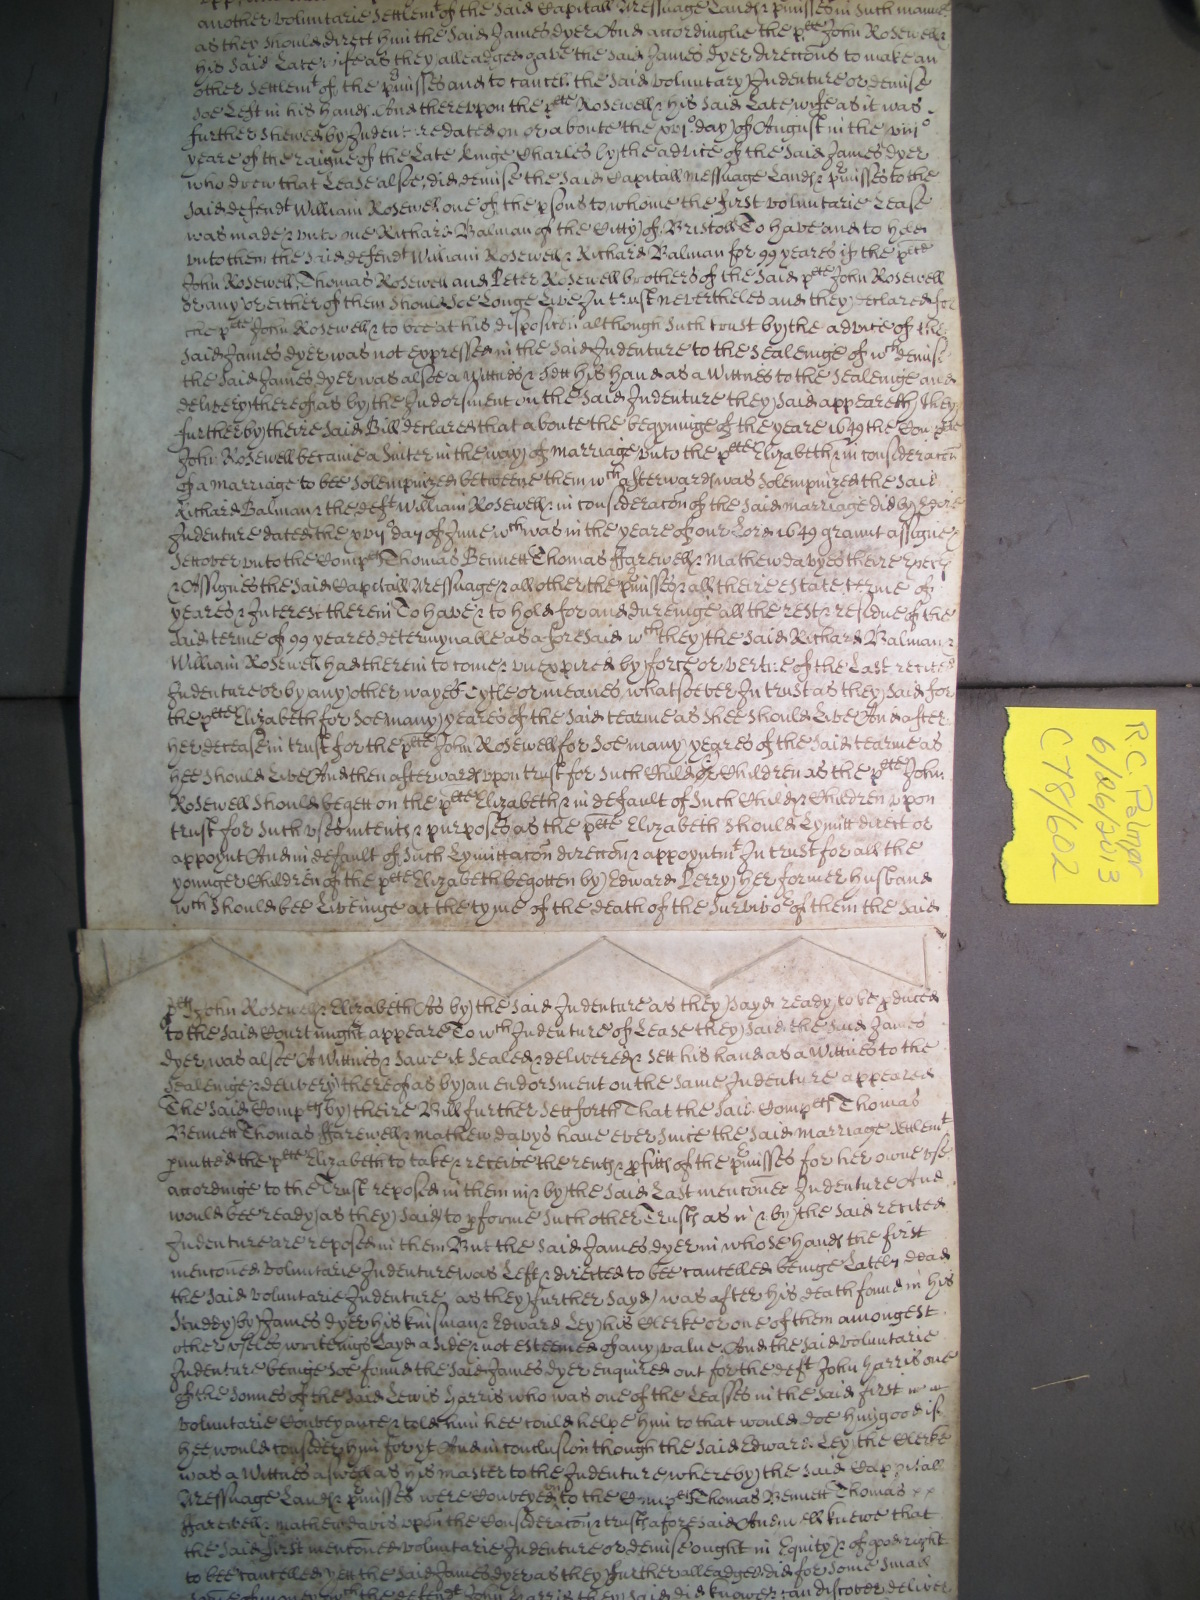 another voluntarie Settlemt of the said Capitall Messuage Lands & pmisses in such manner
as they should direct him the said James Dyer And accordinglie the plte John Rosewell &
his said Late wife as they alleadged gave the said James Dyer direccons to make an
other Settlemt of the pmisses and to cancell the said voluntary Indenture or demise
soe Left in his hands And therevpon the plte Rosewell & his said Late wife as it was
further shewed by Indenture dated on or aboute the day of August in the
yeare of the raigne of the Late Kinge Charles by the advice of the said James Dyer
who drew that Lease alsoe did demise the said Capitall Messuage Lands & pmisses to the
said defendt William Rosewell one of the psons to whome the first voluntarie Lease
was made & vnto one Richard Balman of the Citty of Bristoll To have and to hold
vnto them the said defendt William Rosewell & Richard Balman for 99 yeares if the plte
John Rosewell Thomas Rosewell and Peter Rosewell brothers of the said plte John Rosewell
or any or either of them should soe Longe Live In trust nevertheles and they declared for
the plte John Rosewell & to bee at his disposicon although such trust by the advice of the
said James Dyer was not expressed in the said Indenture to the Sealeinge of wch demise
the said James Dyer was alsoe a Wittnes & sett his hand as a Wittnes to the Sealeinge and
delivery thereof as by the Indorsment on the said Indenture they said appeareth They
further by theire said Bill declared that aboute the begynninge of the yeare 1649 the Comp
John Rosewell became a suiter in the way of marriage vnto the plte Elizabeth & in consideracon
of a marriage to bee solempnized betweene them wch afterwards was solempnized the said
Richard Balman & the deft William Rosewell & in consideracon of the said marriage did by
Indenture dated the day of June wch was in the yeare of our Lord 1649 graunt assigne &
sett over vnto the Complts Thomas Bennett Thomas ffarewell & Mathew Davyes theire
& Assignes the said Capitall Messuage & all other the pmisses & all theire estate terme of
yeares & Interest therein To have & to hold for and dureinge all the rest & residue of the
said terme of 99 yeares determynable as aforesaid wch they the said Richard Balman &
William Rosewell had therein to come & vnexpired by force or vertue of the Last recited
Indenture or by any other wayes tytle or meanes whatsoever In trust as they said for
the plte Elizabeth for soe many yeares of the said tearme as shee should Live And after
her decease in trust for the plte John Rosewell for soe many yeares of the said tearme as
hee should Live And then afterwards vpon trust for such Child or Children as the plte John
Rosewell should begett on the plte Elizabeth & in default of such Child & Children vpon
trust for such vses intents & purposes as the plte Elizabeth should Lymitt direct or
appoynt And in default of such Lymittacon direccon & appoyntmt In trust for all the
younger Children of the plte Elizabeth begotten by Edward Perry her former husband
wch should bee Liveinge at the tyme of the death of the survivor of them the said
plts John Rosewell & Elizabeth As by the said Indenture as they sayd ready to be pduced
to the said Court might appeare To wch Indenture of Lease they said the said James
Dyer was alsoe A Wittnes & sawe it Sealed & delivered & sett his hand as a Wittnes to the
Sealeinge & delivery thereof as by an endorsment on the same Indenture appeared
The said Complts by theire Bill further sett forth That the said Complts Thomas
Bennett Thomas ffarewell & Mathew Davys have ever since the said marriage Settlemt
pmitted the plte Elizabeth to take & receive the rents & pfitts of the pmisses for her owne vse
accordinge to the Trust reposed in them in & by the said Last mentioned Indenture And
would bee ready as they said to pforme such other Trusts as in & by the said recited
Indenture are reposed in them But the said James Dyer in whose hands the first
mentioned voluntarie Indenture was Left & directed to bee cancelled beinge Lately dead
the said voluntarie Indenture as they further sayd was after his death found in his
Studdy by James Dyer his kinsman & Edward Ley his Clerke or one of them amongest
other vseles writeings Layd aside & not esteemed of any value And the said voluntarie
Indenture beinge soe found the said James Dyer enquired out for the deft John Harris one
of the sonnes of the said Lewis Harris who was one of the Leassees in the said first
voluntarie Conveyance & told him hee could helpe him to that would doe him good if
hee would consider him for yt And in conclusion though the said Edward Ley the Clerke
was a Wittnes aswell as his master to the Indenture whereby the said Capitall
Messuage Lands & pmisses were Conveyed to the Complts Thomas Bennett Thomas
ffarewell & Mathew Davis vpon the Consideracon & trusts aforesaid And well knewe that
the said first mentoned voluntarie Indenture or demise ought in Equity & of good right
to bee cancelled yett the said James Dyer as they further alleadged did for some small
some of money wch the defendt John Harris they said did knowe & can discover deliver
R.C. Palmer
6/26/2013
C 78/602